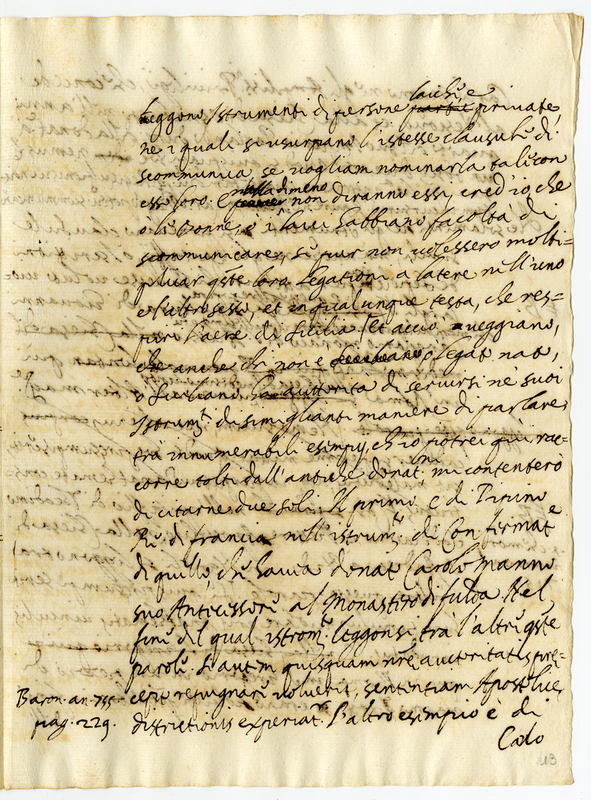 laiche, e
leggono Istrumenti di persone partic private,
ne i quali si usurpano l'istesse clausule di
scommunica, se vogliam nominarla tale con
esse loro. E nulladimeno non diranno essi, cred'io, che
ò le Donne, è i laici habbiano facoltà di
scommunicare, se pur non volessero molti=
plicar q̃ste loro legationi a latere nell'uno
e l'altro sesso, et in qualunque testa, che res=
piri l'aere di Sicilia. Et acciò veggiano,
che anche chi non è o legato nato,
o siciliano ha auttorità di servirsi ne' suoi
Istrum.ti di simiglianti maniere di parlare,
trà innumerabili esempij, ch'io potrei quì rac=
corre tolti dall'antiche donat.ni, mi contenterò
di citarne due soli. Il primo è di Pipino
Rè di francia nell'istrum.to di Confermat.e
di quello, che havea donato Carolo Manno
suo Antecessore al Monastero di fulda. Nel
fine del qual istrom.to leggonsi trà l'altre q̃ste
parole. Si autem quisquam nr̃e auctoritatis pre=
cepto repugnare voluerit, sententiam Apostolicæ
districtionis experiat.r L'altro esempio è di
Baron. an. 755.
pag. 229.
Carlo
113